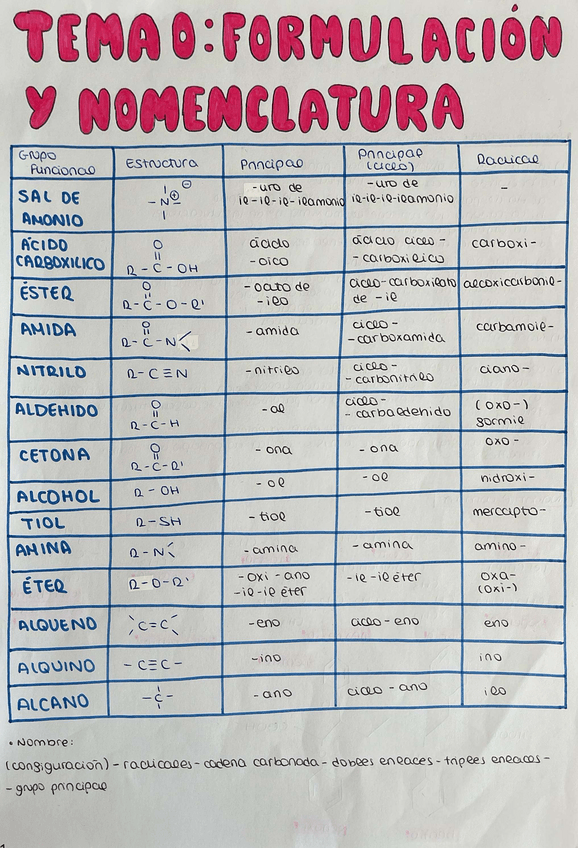 TEMA 0: FORMULACIÓN
Y NOMENCLATURA
Grupo Funcional | Estructura | Principal | Principal (ciclo) | Radical
SAL DE ANONIO | -N⊕ ⊖ | -uro de il-il-il-ilamonio | -uro de il-il-il-ilamonio | -
ÁCIDO CARBOXILICO | O || R-C-OH | ácido -oico | ácido ciclo- -carboxilico | carboxi-
ÉSTER | O || R-C-O-R' | -oato de -ilo | ciclo-carboxilato de -il | alcoxicarbonil-
AMIDA | O || R-C-N< | -amida | ciclo- -carboxamida | carbamoil-
NITRILO | R-C≡N | -nitrilo | ciclo- -carbonitrilo | ciano-
ALDEHIDO | O || R-C-H | -al | ciclo- -carbaldehido | (oxo-) formil
CETONA | O || R-C-R' | -ona | -ona | oxo-
ALCOHOL | R-OH | -ol | -ol | hidroxi-
TIOL | R-SH | -tiol | -tiol | mercapto-
AMINA | R-N< | -amina | -amina | amino-
ÉTER | R-O-R' | -oxi-ano -il-il éter | -il-il éter | oxa- (oxi-)
ALQUENO | >C=C< | -eno | ciclo-eno | eno
ALQUINO | -C≡C- | -ino | ino
ALCANO | -C- | -ano | ciclo-ano | ilo
• Nombre:
(configuración)-radicales-cadena carbonada-dobles enlaces-triples enlaces-
-grupo principal